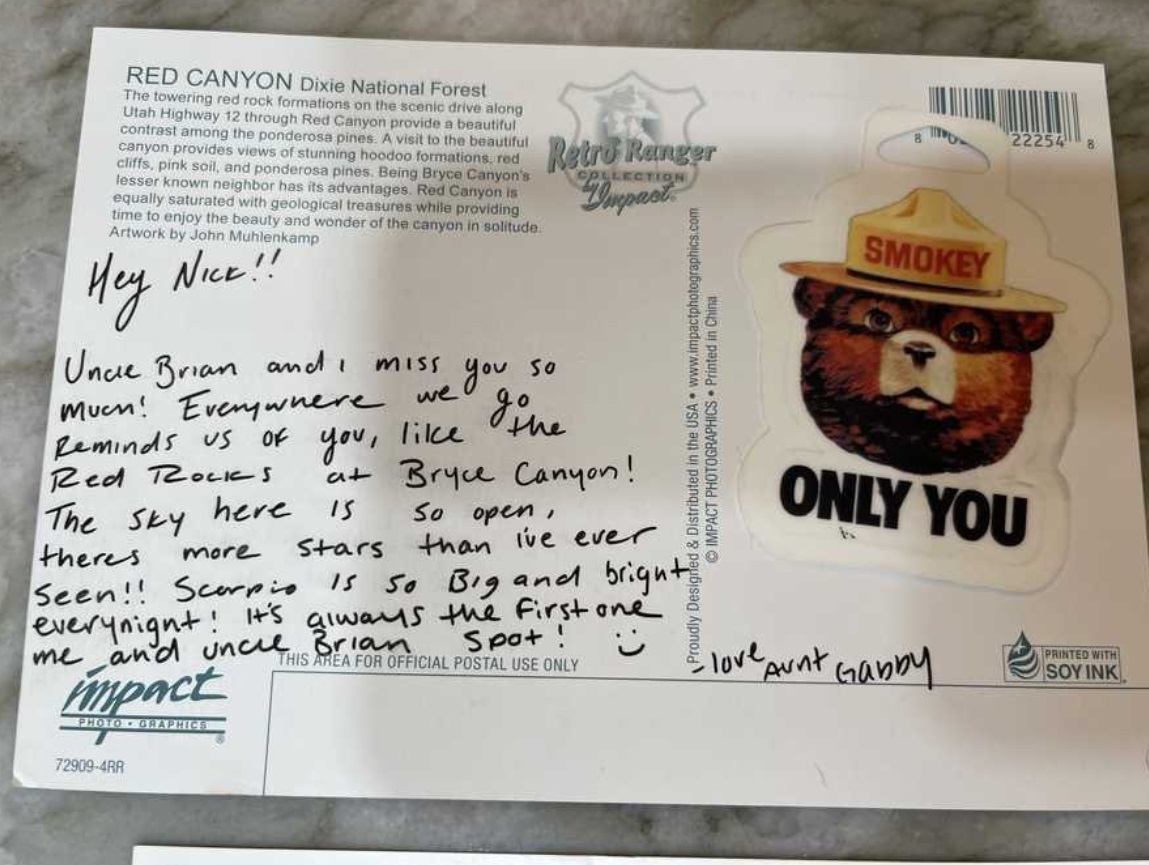 RED CANYON Dixie National Forest
The towering red rock formations on the scenic drive along
Utah Highway 12 through Red Canyon provide a beautiful
contrast among the ponderosa pines. A visit to the beautiful
canyon provides views of stunning hoodoo formations, red
cliffs, pink soil, and ponderosa pines. Being Bryce Canyon's
lesser known neighbor has its advantages. Red Canyon is
equally saturated with geological treasures while providing
time to enjoy the beauty and wonder of the canyon in solitude.
Artwork by John Muhlenkamp
Retro Ranger
COLLECTION
by Impact
8
22254
8
Hey Nick!!
Uncle Brian and i miss you so
much! Everywhere we go
Reminds us of you, like the
Red Rocks at Bryce Canyon!
The sky here is so open,
theres more stars than i've ever
seen!! Scorpio is so Big and bright
everynight! It's always the first one
me and uncle Brian spot! :)
- love Aunt Gabby
Proudly Designed & Distributed in the USA • www.impactphotographics.com
© IMPACT PHOTOGRAPHICS • Printed in China
SMOKEY
ONLY YOU
THIS AREA FOR OFFICIAL POSTAL USE ONLY
impact
PHOTO • GRAPHICS
®
72909-4RR
PRINTED WITH
SOY INK